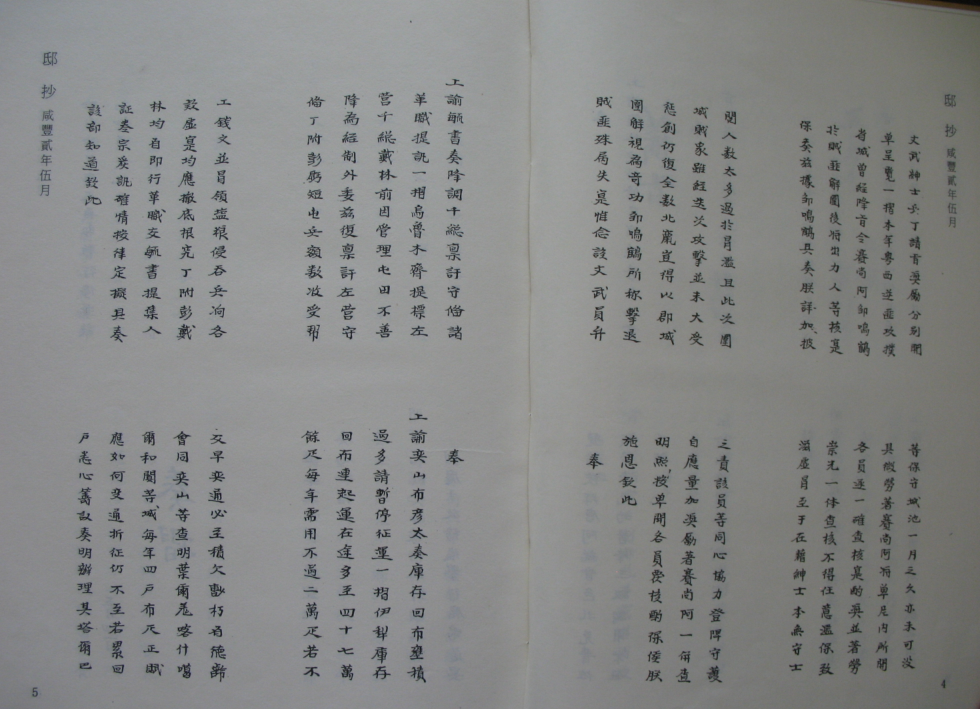 邸抄 咸豐貳年伍月
文武紳士乎丁請旨獎勵分別開
單呈覽一摺本年粵西逆匪攻撲
省城曾經降旨令賽尚阿鄒鳴鶴
於賊匪解圍後將出力人等核寔
保奏茲據鄒鳴鶴具奏朕詳加披
閱人數太多過於冐濫且此次圍
城賊衆雖經迭次攻擊並未大受
懲創仍復全數北竄豈得以郡城
圍解視為奇功鄒鳴鶴所称擊退
賊匪殊屬失寔惟念該文武員弁
等保守城池一月之久亦未可沒
其微勞著賽尚阿將單內所開
各員逐一確查核寔酌獎並著勞
崇光一体查核不得任意濫保致
滋虛冐至于在籍紳士本無守土
之責該員等同心協力登陴守護
自應量加獎勵著賽尚阿一併查
明照按單開各員覈核酌保俟朕
施恩欽此
奉
4
邸抄 咸豐貳年伍月
上諭毓書奏降調千總禀訐守俻請
革職提訊一摺烏魯木齊提標左
營千総戴林前因管理屯田不善
降為經制外委茲復禀訐左營守
俻丁附彭剋短屯兵額数收受帮
工錢文並冐領盐粮侵吞兵餉各
款虛寔均應撤底根究丁附彭戴
林均着即行革職交毓書提集人
証卷宗妥訊確情按律定擬具奏
該部知道欽此
奉
上諭奕山布彥太奏庫存回布壅積
過多請暫停征運一摺伊犁庫存
回布連起運在途多至四十七萬
餘疋每年需用不過二萬疋若不
及早变通必至積欠黴朽着德齡
會同奕山等查明葉爾羌喀什噶
爾和闐等城每年回戶布疋正賦
應如何变通折征仍不至苦累回
戶悉心籌議奏明辦理其塔爾巴
5